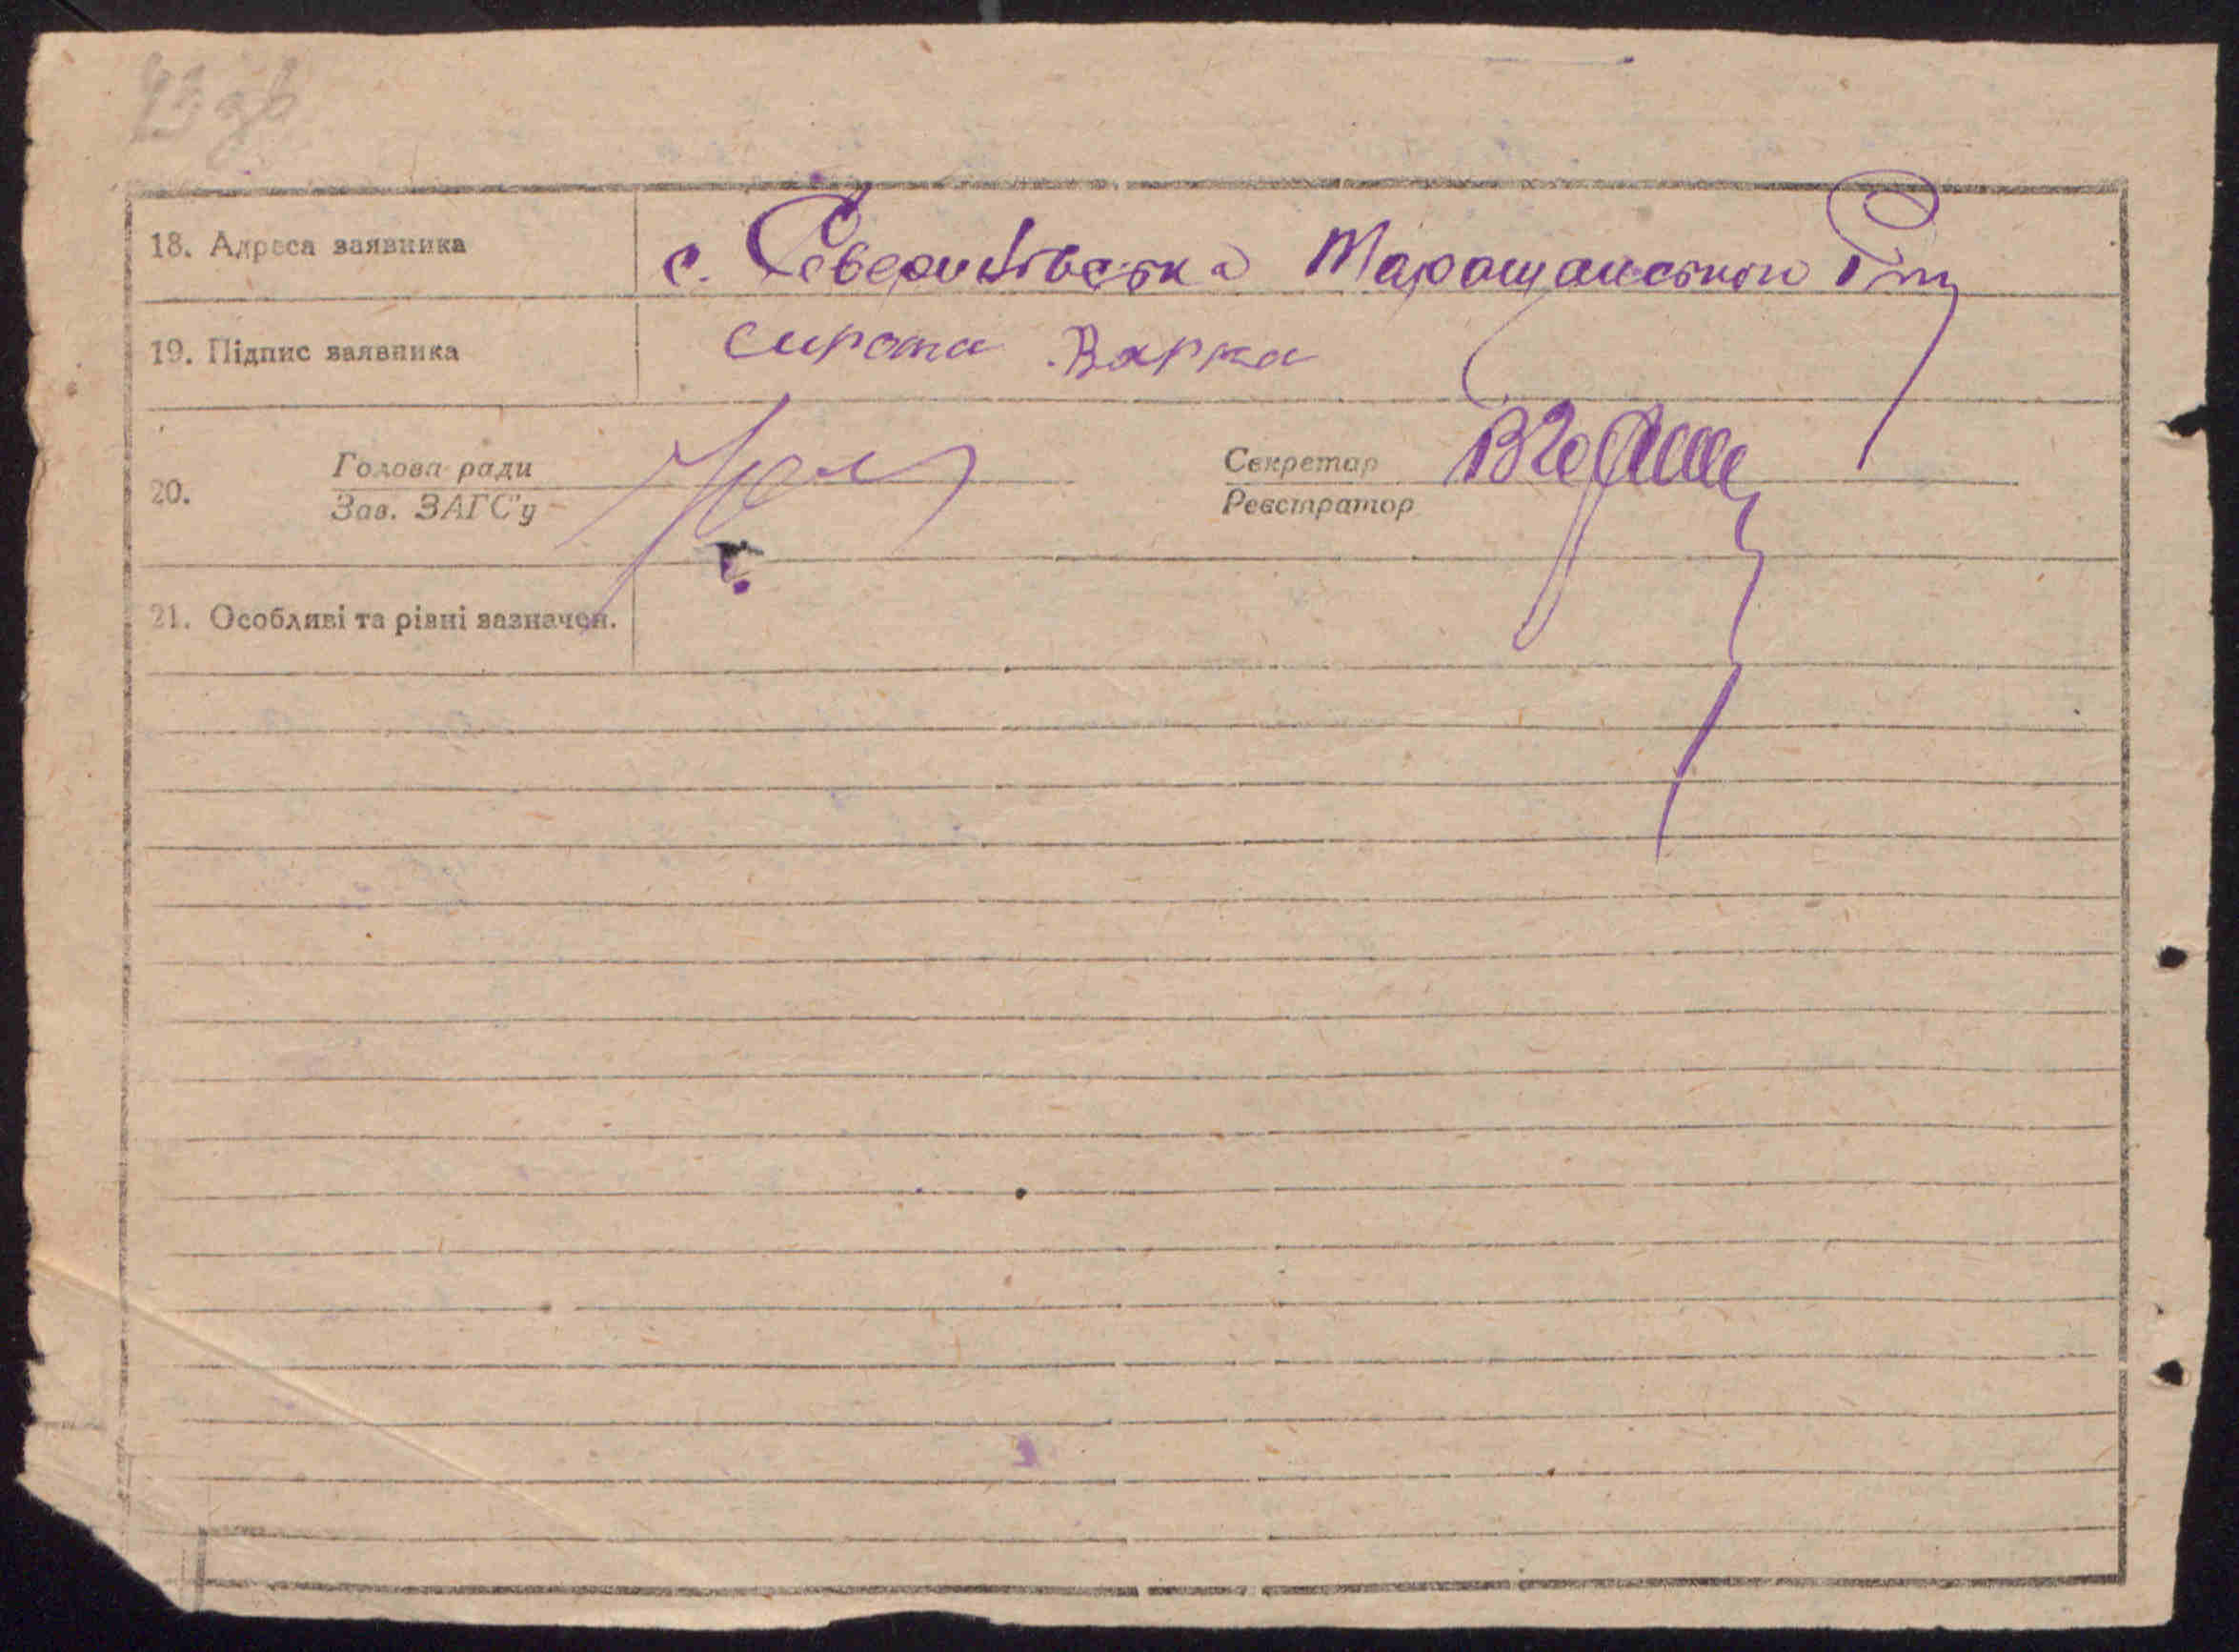 23 зв
18. Адреса заявника с. Северинівська Таращанського
19. Підпис заявника Сирота Варка
Голова ради
20. Зав. ЗАГС'у
Секретар
Реєстратор
21. Особливі та рівні зазначен.